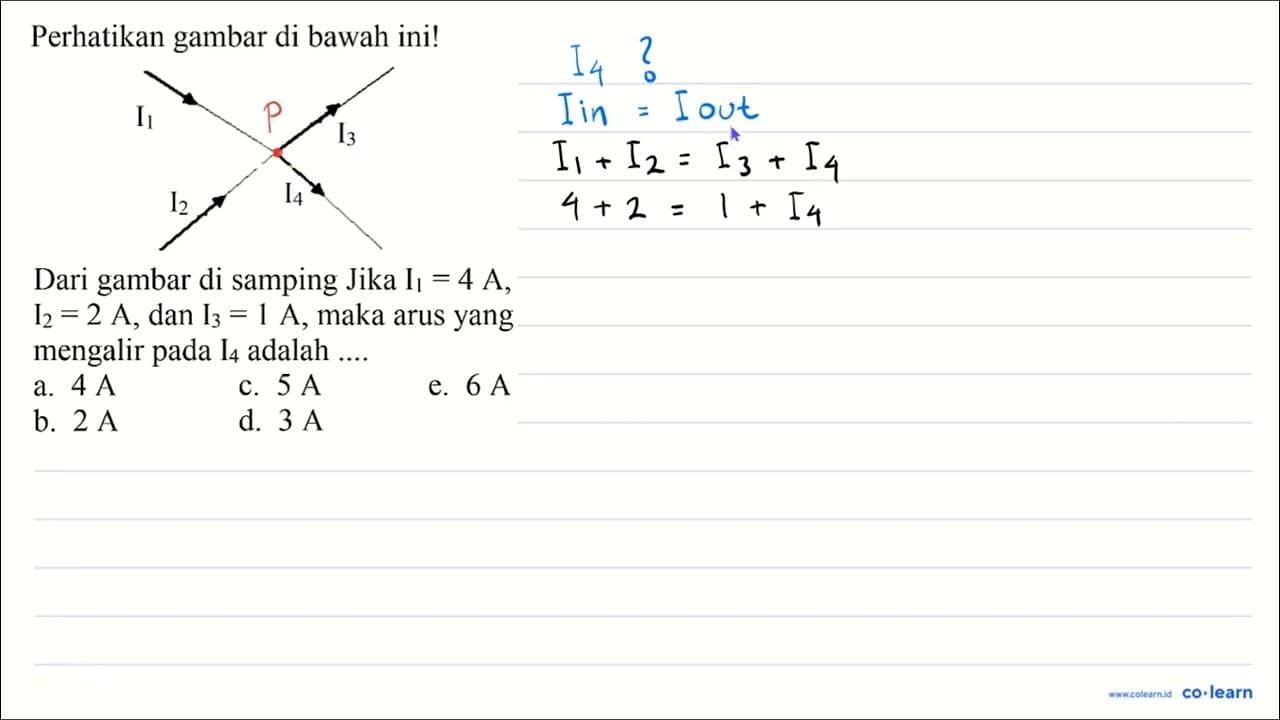 Perhatikan gambar di bawah ini!
I₁
P
I₃
I₂
I₄
Dari gambar di samping Jika I₁ = 4 A,
I₂ = 2 A, dan I₃ = 1 A, maka arus yang
mengalir pada I₄ adalah ....
a. 4 A c. 5 A e. 6 A
b. 2 A d. 3 A
I₄ ?
I in = I out
I₁ + I₂ = I₃ + I₄
4 + 2 = 1 + I₄
www.colearn.id co·learn